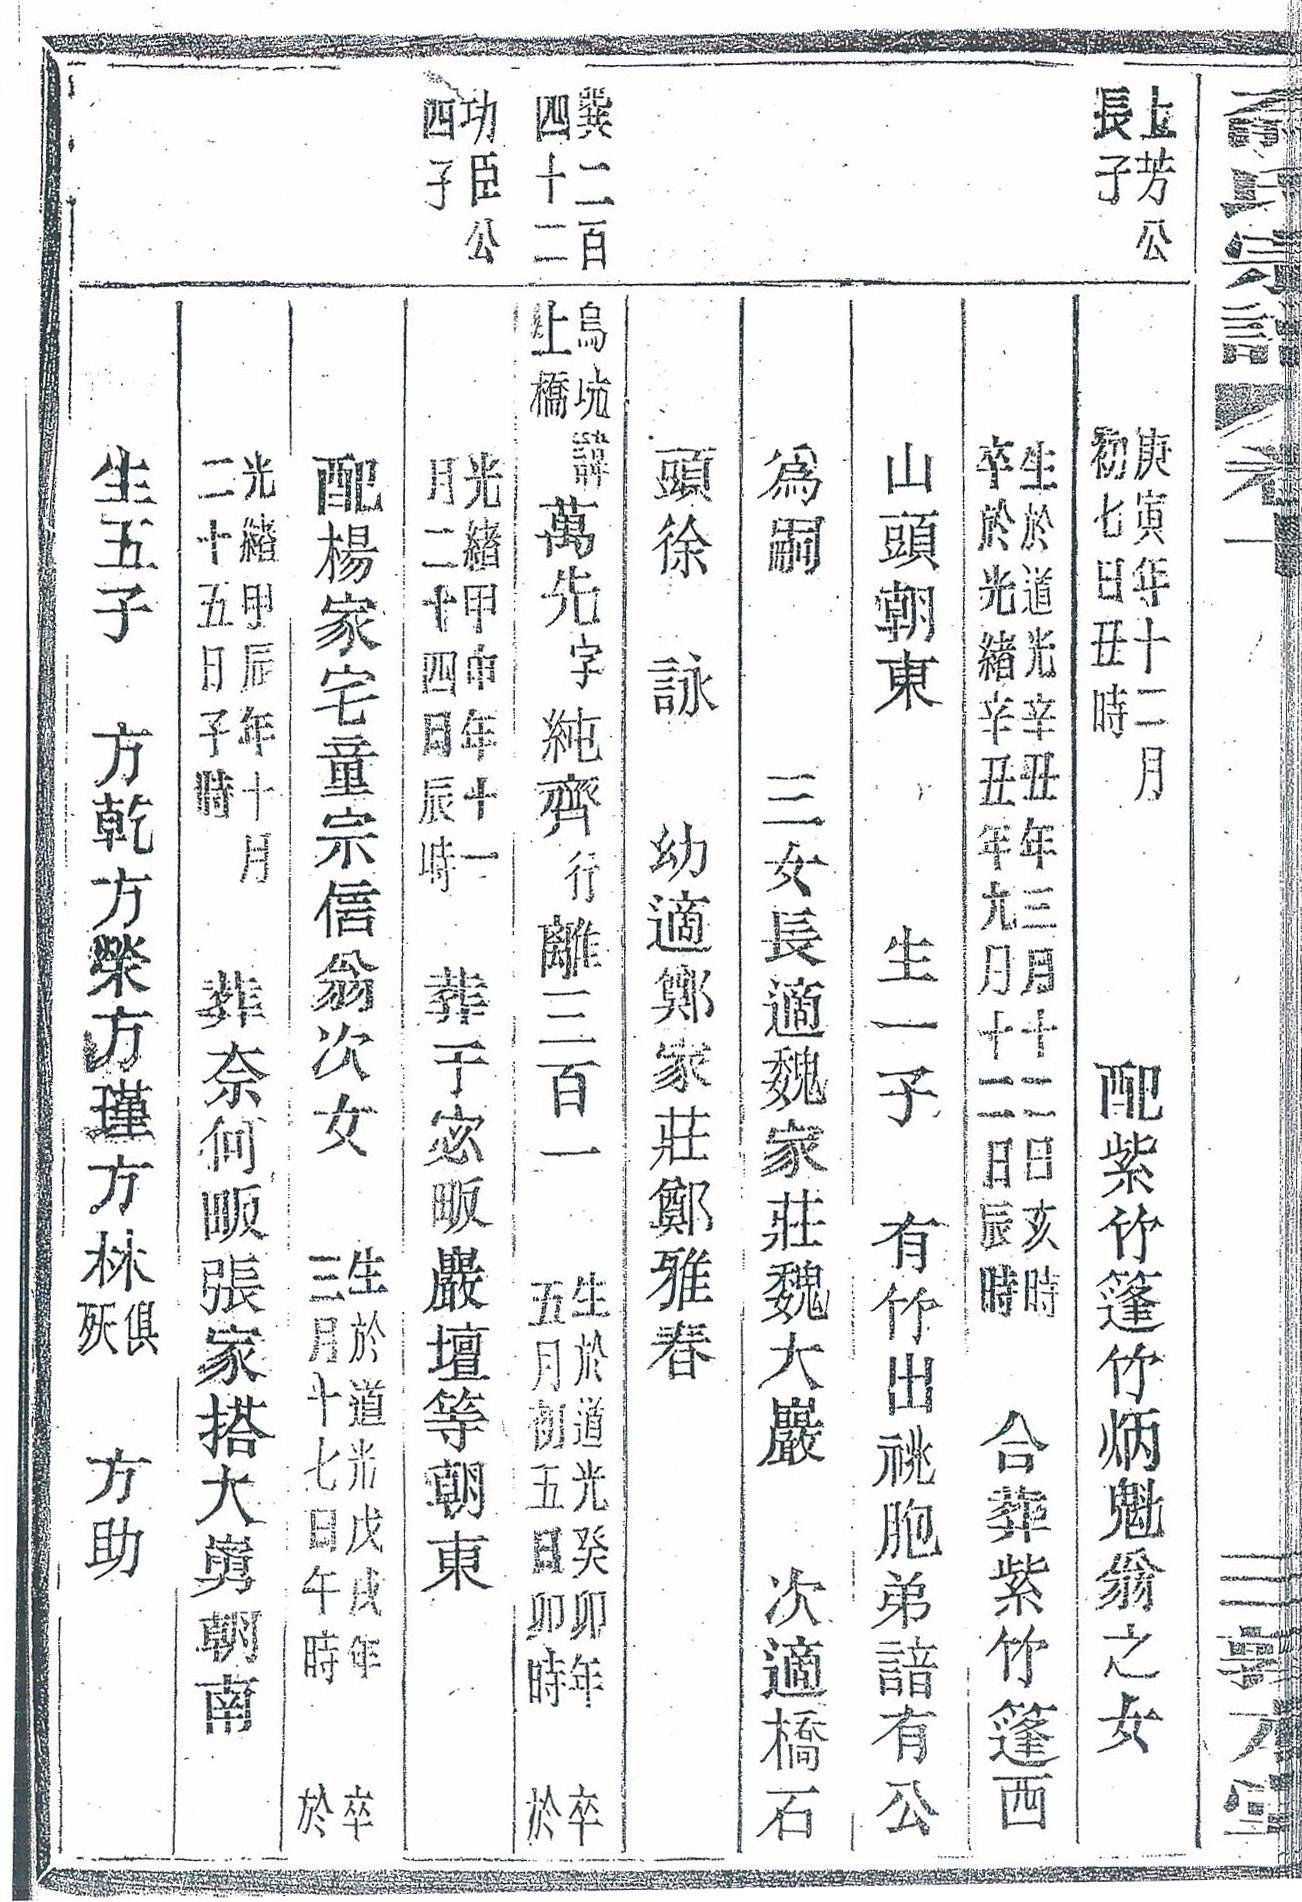 上芳公
長子
庚寅年十二月
初七日丑時
配紫竹篷竹炳魁翁之女
生於道光辛丑年三月十二日亥時
卒於光緒辛丑年九月十二日辰時
合葬紫竹篷西
山頭朝東 生一子 有竹出祧胞弟諳有公
為嗣 三女長適魏家莊魏大巖 次適橋石
頭徐 詠 幼適鄭家莊鄭雅春
巽二百
四十二
烏坑
上橋
諱萬先字純齊行離三百一
生於道光癸卯年
五月初五日卯時
卒
於
功臣公
四子
光緒甲申年十一
月二十四日辰時
葬于宓畈嚴壇等朝東
配楊家宅童宗信翁次女
生於道光戊戌年
三月十七日午時
卒
於
光緒甲辰年十月
二十五日子時
葬奈何畈張家搭大嶴朝南
生五子 方乾方榮方瑾方林俱
死
方助